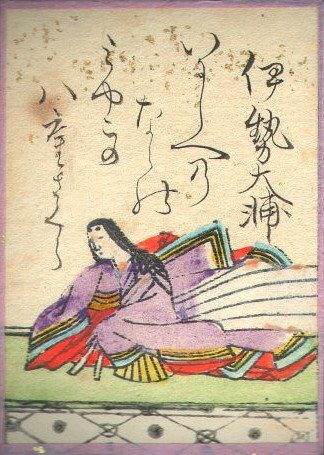 伊勢大輔
いにしへ乃
ならの
みやこの
八重さくら